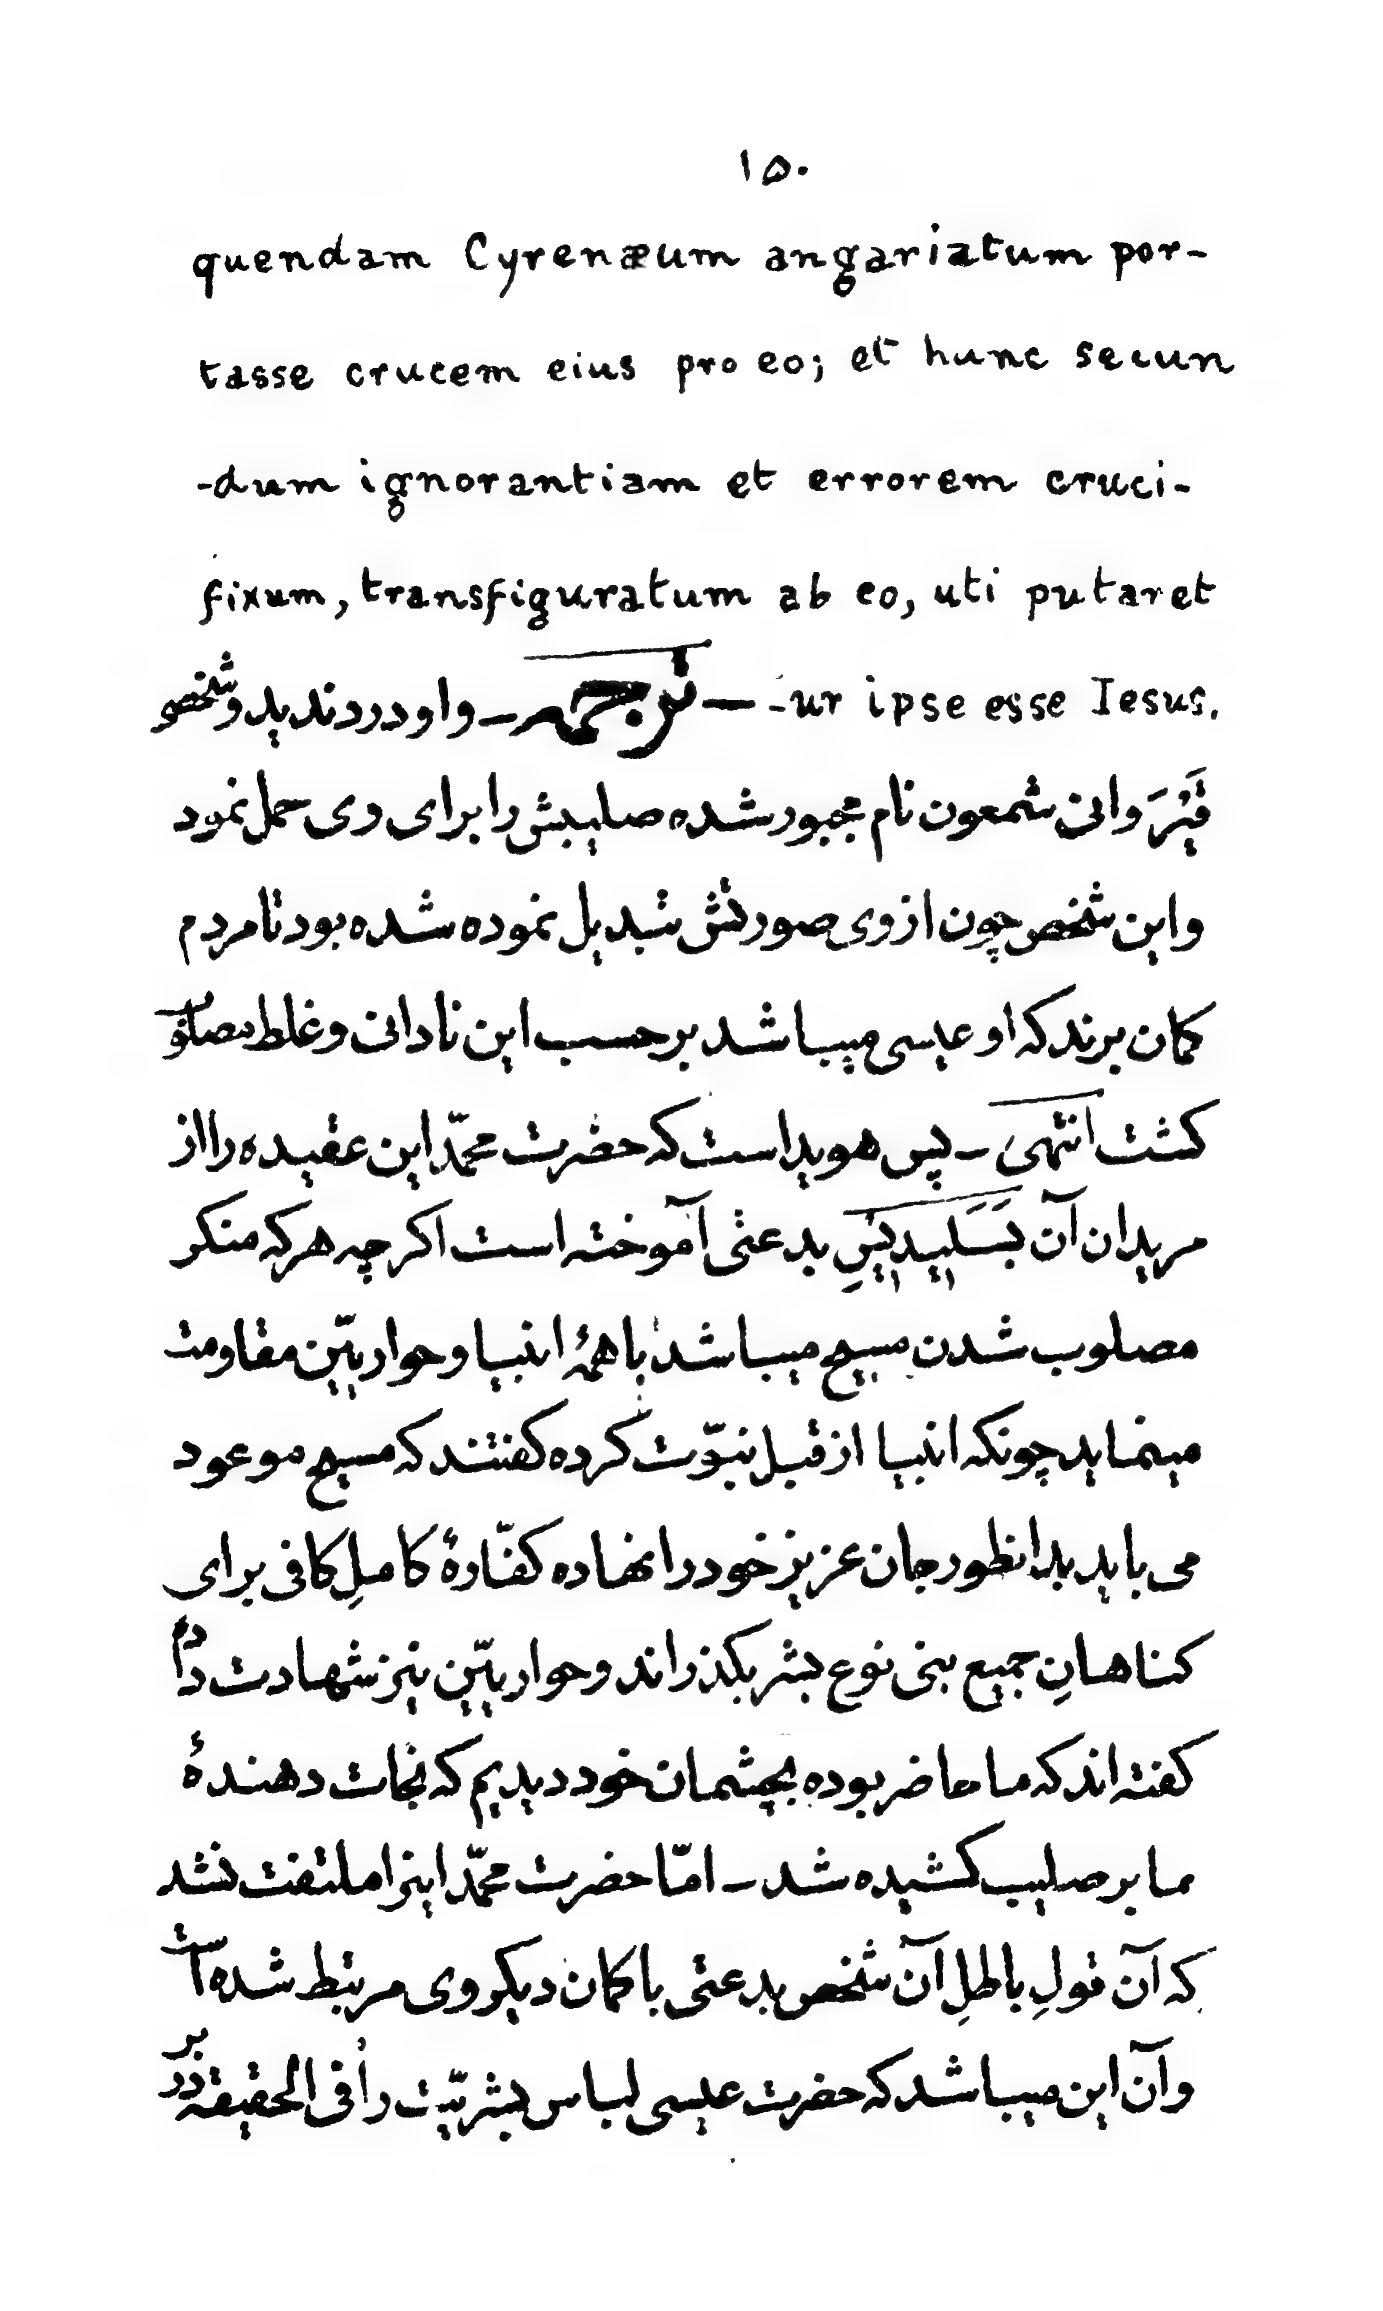 ۱۵۰
quendam Cyrenæum angariatum por-
tasse crucem eius pro eo; et hunc secun
-dum ignorantiam et errorem cruci-
fixum, transfiguratum ab eo, uti putaret
-ur ipse esse Iesus. — ترجمه — و او درد ندید و شخصی
قَیْرَوانی شمعون نام مجبور شده صلیبش را برای وی حمل نمود
و این شخص چون از وی صورتش تبدیل نموده شده بود تا مردم
کمان برند که او عیسی میباشد بر حسب این نادانی و غلط مصلوب
کشت انتهیٰ — پس هویدا است که حضرت محمّد این عقیده را از
مریدان آن بَسَلِیدِیسِ بدعتی آموخته است اکرچه هر که منکر
مصلوب شدن مسیح میباشد با همهٔ انبیا و حواریّین مقاومت
مینماید چونکه انبیا از قبل نبوّت کرده کفتند که مسیح موعود
می باید بدانطور جان عزیز خود را نهاده کفّارهٔ کاملِ کافی برای
کناهانِ جمیع بنی نوع بشر بکذراند و حواریّین نیز شهادت داده
کفته اند که ما حاضر بوده بچشمان خود دیدیم که نجات دهندهٔ
ما بر صلیب کشیده شد — امّا حضرت محمّد اینرا ملتفت نشد
که آن قولِ باطلِ آن شخص بدعتی با کمان دیکر وی مرتبط شده است
و آن این میباشد که حضرت عیسی لباس بشریّت را فی الحقیقه در بر